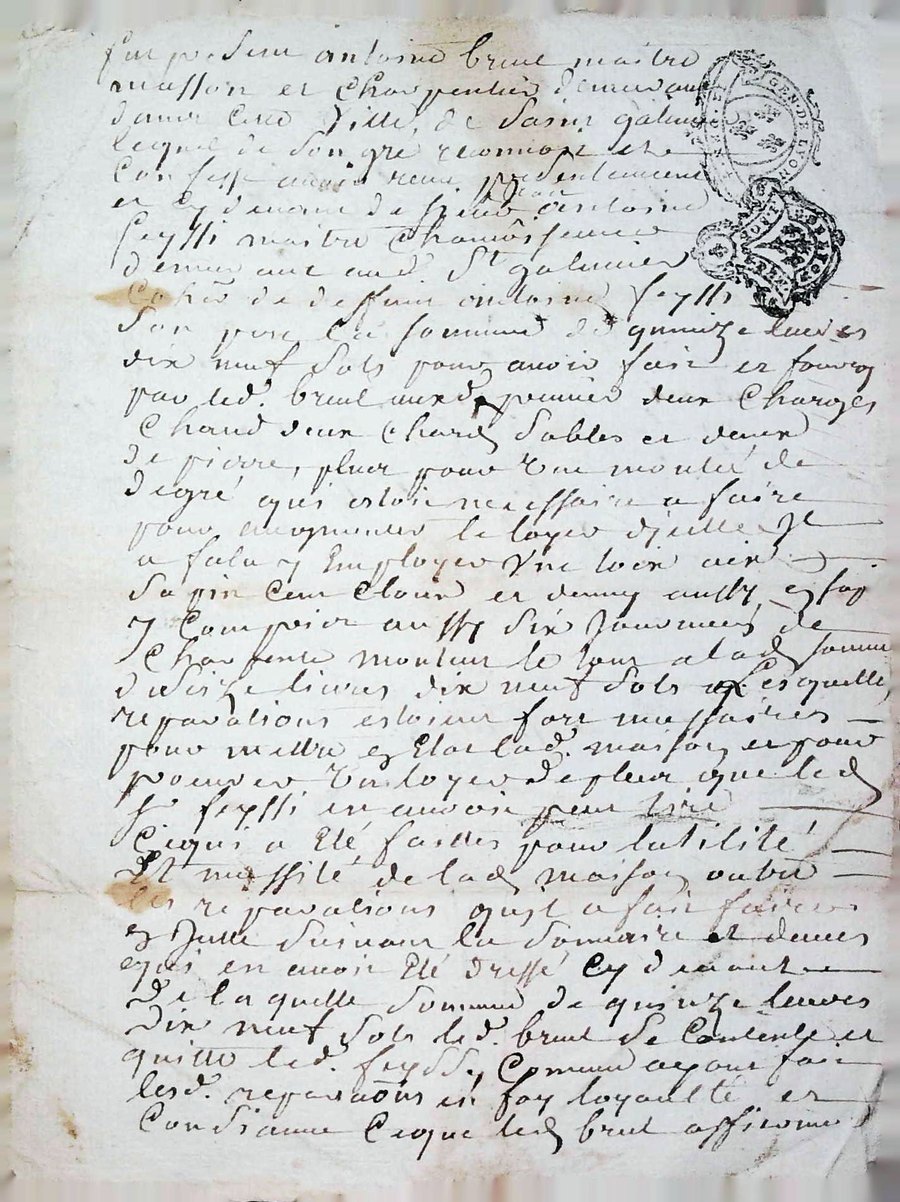 fut présent antoine breut maitre
masson et Charpentier demeurant
dans cette Ville de Saint galmier
lequel de Son gré reconnoit et
Confesse avoir receu presentement
et cy devant de sieur antoine
feyssi maitre Chamoiseur
demeurant aud St galmier
de deffunt antoine feyssi
Son pere la somme de quinze livres
dix neuf Sols pour avoir fait et fourny
par led. breut deux Charges
Chaud deux Chard Sables et deux
de pierre, pour une montée de
degré qui estoit nessaire a faire
pour augmenter le loyer dicelle Il
a falu y Employer Une
Sapin Cent Cloux et demy aussy
y Compris aussy Six Journées de
Charpente montant le tout a lad somme
de quinze livres dix neuf Sols lesquelles
reparations estoient fort nessaires
pour mettre en Etat lad. maison et pour
Un loyer de plus que led
Sr feyssi en avoit peut tiré
Ce qui a Eté faittes pour lutilité
Et nessité de lad maison outre
les reparations quil a fait faire
Suivant la Sommaire
qui en avoit Eté dressé Cy devant
De laquelle Somme de quinze livres
Dix neuf Sols led. breut Se Contente et
quitte led. feyssy Comme ayant fait
lesd. reparaons en foy loyauté et
Consiance Ceque led breut affirme
GEN. DE LYON